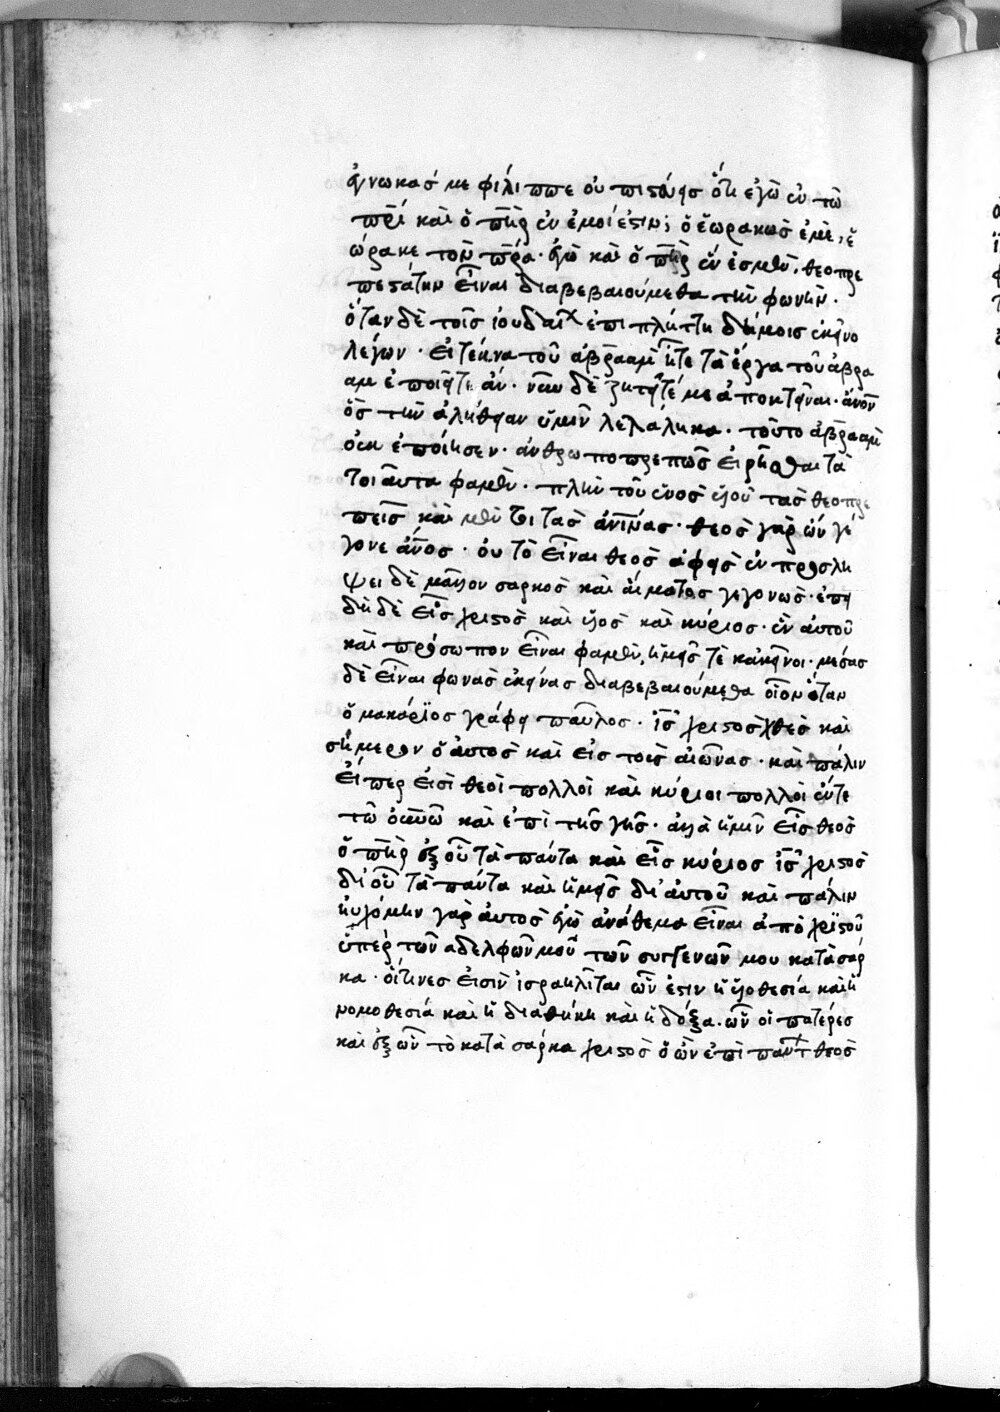 ἔγνωκάσ με φίλιππε οὐ πιστεύεισ ὅτι ἐγὼ ἐν τῶ
πρὶ καὶ ὁ πὴρ ἐν ἐμοί ἐστιν; ὁ ἑωρακὼσ ἐμὲ, ἑ
ώρακε τὸν πρα· ἐγὼ καὶ ὁ πὴρ ἕν ἐσμεν. θεοπρε
πεστάτην εἶναι διαβεβαιούμεθα τὴν φωνήν.
ὅταν δὲ τοῖσ ἰουδαίοισ ἐπιπλήττη δήμοισ ἐκεῖνο
λέγων· εἰ τέκνα τοῦ ἀβραὰμ ἦτε τὰ ἔργα τοῦ ἀβρα
αμ ἐποιεῖτε ἄν· νῦν δὲ ζητεῖτέ με ἀποκτεῖναι· ἄνον
ὃσ τὴν ἀλήθειαν ὑμῖν λελάληκα· τοῦτο ἀβραὰμ
οὐκ ἐποίησεν· ἀνθρωποπρεπῶσ εἰρῆσθαι τὰ
τοιαῦτα φαμὲν· πλὴν τοῦ ἑνὸσ υἱοῦ τάσ θεοπρε
πεῖσ καὶ μέν τοι τὰσ ἀνίνασ· θεὸσ γὰρ ὢν γέ
γονε ἄνοσ· οὐ τὸ εἶναι θεὸσ ἀφεὶσ ἐν προσλή
ψει δὲ μᾶλλον σαρκὸσ καὶ αἵματοσ γεγονὼσ· ἐπει
δὴ δὲ εἷσ χριστὸσ καὶ υἱὸσ καὶ κύριοσ· ἓν αὐτοῦ
καὶ πρόσωπον εἶναι φαμὲν, ἡμεῖσ τὲ κἀκεῖνοι· μέσασ
δὲ εἶναι φωνὰσ ἐκείνασ διαβεβαιούμεθα οἷον ὅταν
ὁ μακάριοσ γράφει παῦλοσ· ἰσ χριστὸσ χθὲσ καὶ
σήμερον ὁ αὐτὸσ καὶ εἰσ τοὺσ αἰῶνασ· καὶ πάλιν
εἴπερ εἰσὶ θεοὶ πολλοὶ καὶ κύριοι πολλοὶ ἔντε
τῶ οὐνῶ καὶ ἐπὶ τῆσ γῆσ· ἀλλὰ ἡμῖν εἷσ θεὸσ
ὁ πὴρ ἐξ οὗ τὰ πάντα καὶ εἷσ κύριοσ ἰσ χριστὸσ
δι' οὗ τὰ πάντα καὶ ἡμεῖσ δι' αὐτοῦ καὶ πάλιν
ηὐχόμην γὰρ αὐτὸσ ἐγὼ ἀνάθεμα εἶναι ἀπὸ χριστοῦ
ὑπὲρ τῶν ἀδελφῶν μοῦ τῶν συγγενῶν μου κατὰ σάρ
κα· οἵτινεσ εἰσὶν ἰσραηλῖται ὧν ἐστιν ἡ υἱοθεσία καὶ ἡ
νομοθεσία καὶ ἡ διαθήκη καὶ ἡ δόξα· ὧν οἱ πατέρεσ
καὶ ἐξ ὧν τὸ κατὰ σάρκα χριστὸσ ὁ ὢν ἐπὶ πάντ θεὸσ